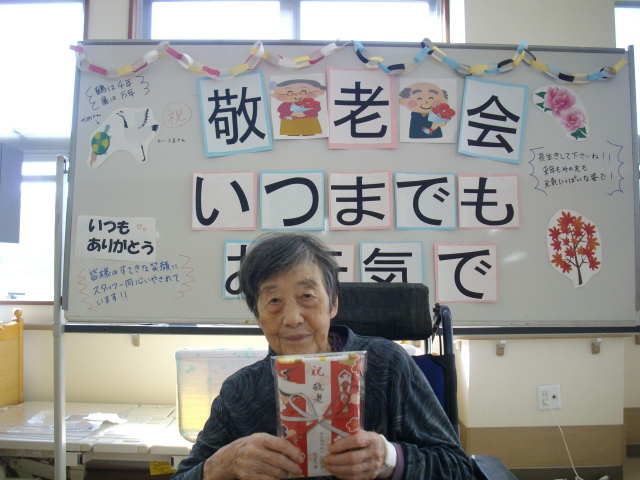 鶴は千年
亀は万年
かめさん
祝
←つるさん
敬老会
いつまでも
お元気で
長生きして下さいね!!
いつも
ありがとう
皆様のすてきな笑顔に
スタッフ一同心いやされて
います!!
元気いっぱいな姿で!
祝敬老